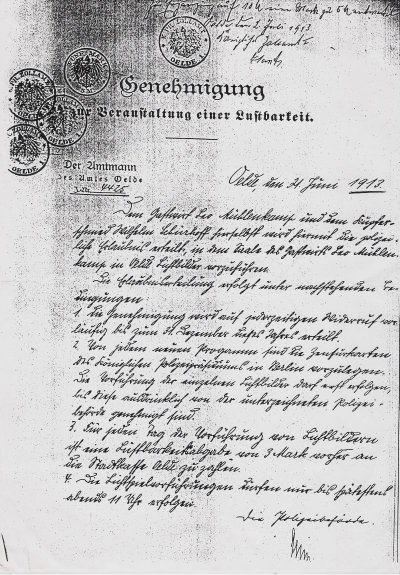 den 2. Juli 1913
Königliche Zollamt
Genehmigung
zur Veranstaltung einer Lustbarkeit.
Der Amtmann
des Amtes Oelde
J.-Nr. 4426
Oelde den 21 Juni 1913.
Dem Gastwirt Leo Mühlenkamp und dem Kupfer-
schmied Wilhelm hierselbst wird hiermit die polizei-
liche Erlaubnis erteilt, in dem Saale des Gastwirts Leo Mühlen-
kamp in Oelde Lichtbilder vorzuführen.
Die Erlaubniserteilung erfolgt unter nachstehenden Be-
dingungen
1. Die Genehmigung wird auf jederzeitigen Widerruf vor-
läufig bis zum 31. Dezember dieses Jahres erteilt.
2. Von jedem neuen Programm sind die Zensurkarten
des Königlichen Polizeipräsidiums in Berlin vorzulegen.
Die Vorführung der einzelnen Lichtbilder darf erst erfolgen,
bis diese ausdrücklich von der unterzeichneten Polizei-
behörde genehmigt sind.
3. Für jeden Tag der Vorführung von Lichtbildern
ist eine Lustbarkeitsabgabe von 3 Mark vorher an
die Stadtkasse Oelde zu zahlen.
4. Die Lichtspielvorführungen dürfen nur bis spätestens
abends 11 Uhr erfolgen.
Die Polizeibehörde.